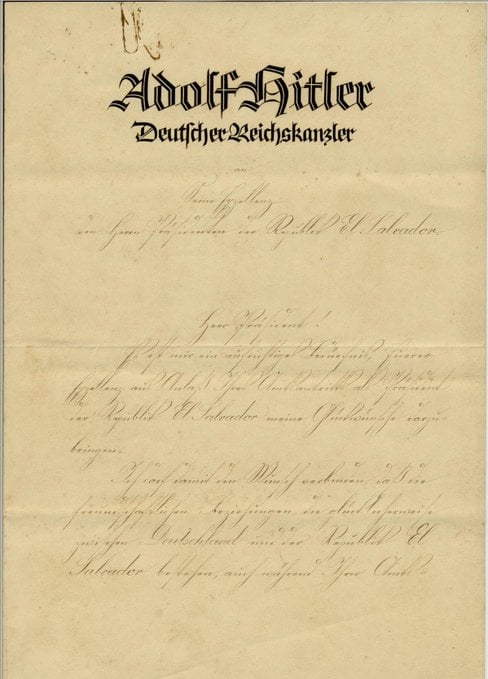 Adolf Hitler
Deutscher Reichskanzler
an
Seine Exzellenz
den Herrn Präsidenten der Republik El Salvador.
Herr Präsident!
Es ist mir ein aufrichtiges Bedürfnis, Euerer
Exzellenz aus Anlaß Ihres Amtsantritts als Präsident
der Republik El Salvador meine Glückwünsche darzu-
bringen.
Ich darf damit den Wunsch verbinden, daß die
freundschaftlichen Beziehungen, die
zwischen Deutschland und der Republik El
Salvador bestehen, auch während Ihrer Amts-